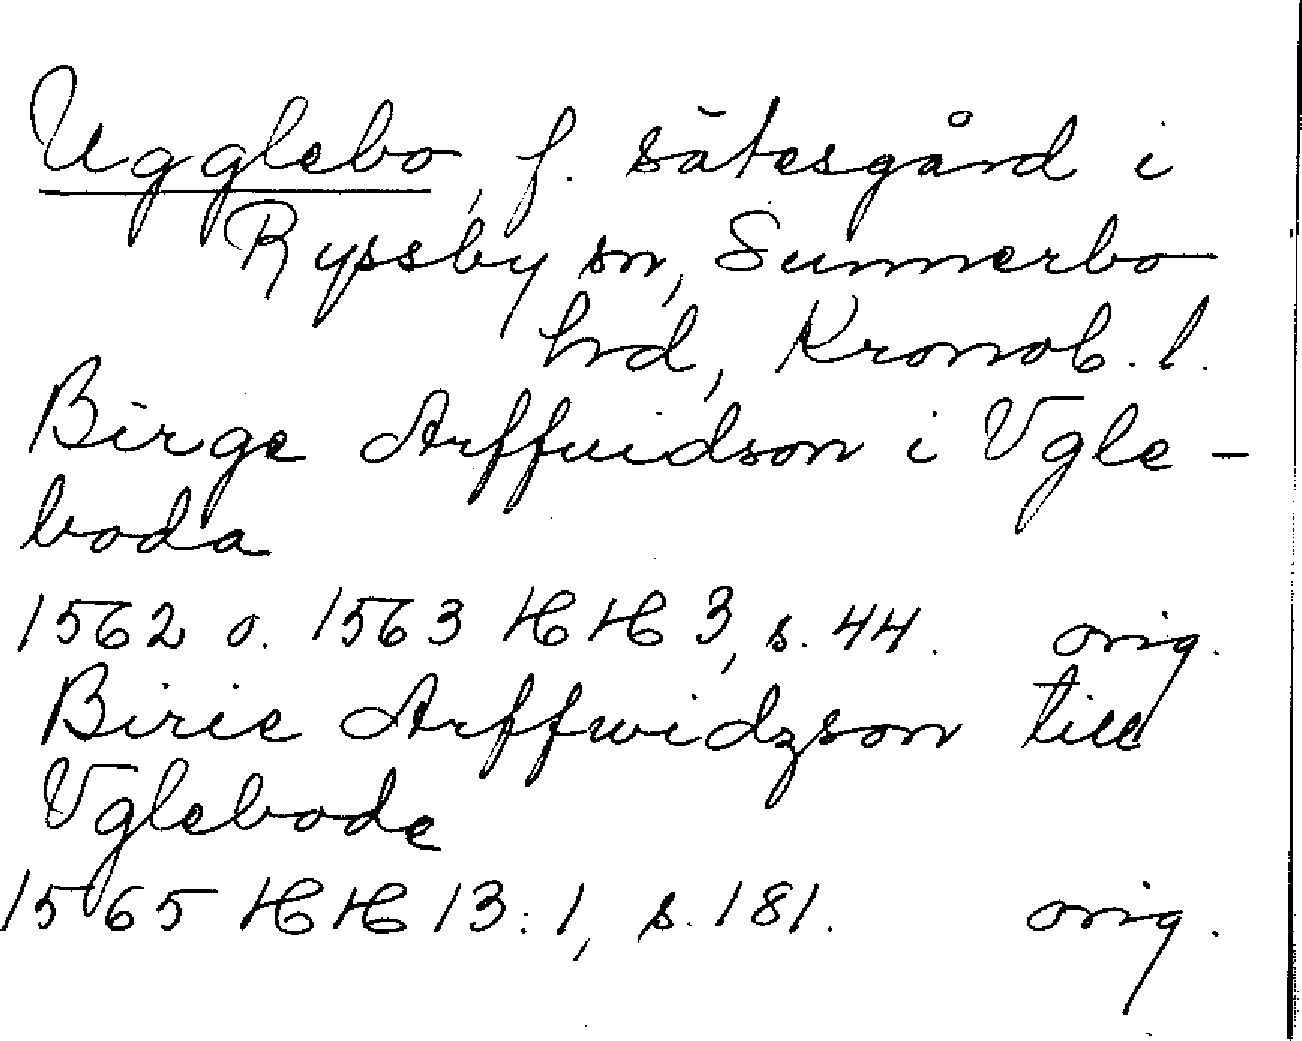 Ugglebo, f. sätesgård i
Ryssby sn, Sunnerbo
hd, Kronob. l.
Birge Arffuidson i Vgle-
boda
1562 o. 1563 HH 3, s. 44. orig.
Birie Arffwidzson till
Vglebode
1565 HH 13:1, s. 181. orig.